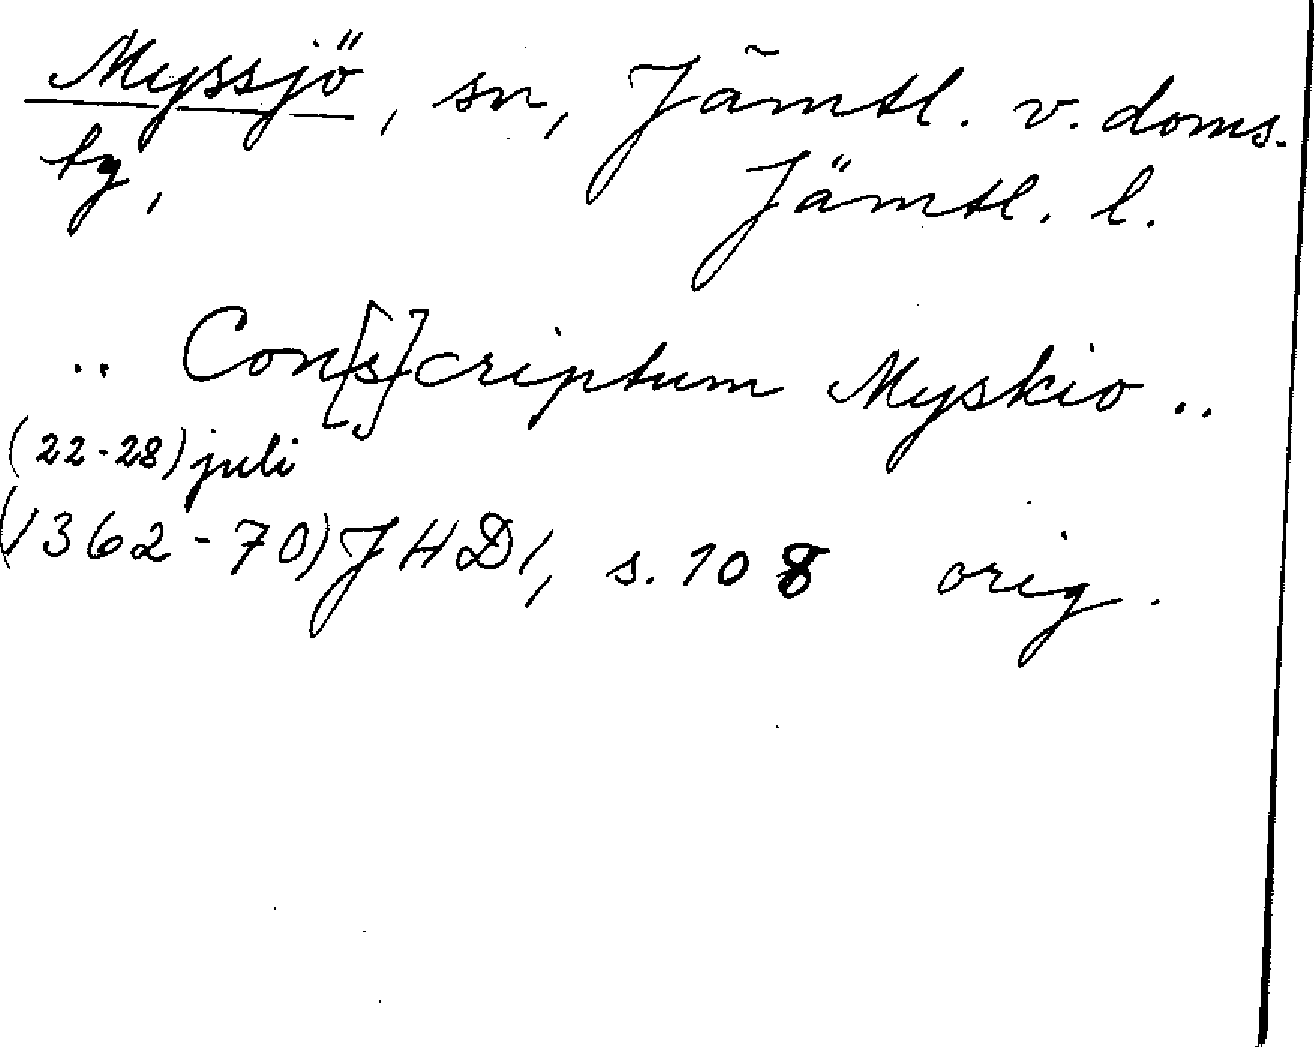 Myssjö, sn, Jämtl. v. doms.
tg, Jämtl. l.
.. Con[s]criptum Myskio ..
(22-28) juli
(1362-70) JHD1, s. 108 orig.